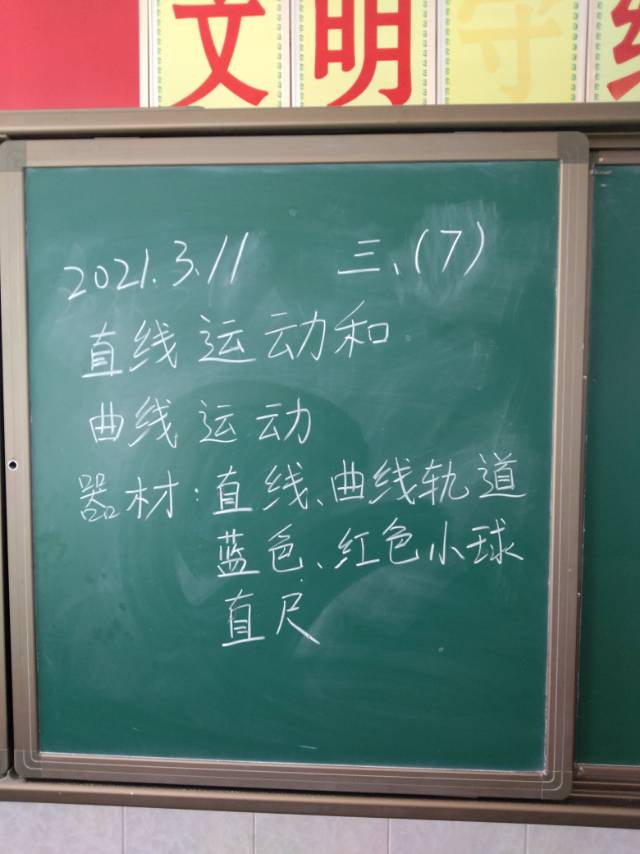 文明守纟
2021.3.11 三、(7)
直线运动和
曲线运动
器材：直线、曲线轨道
蓝色、红色小球
直尺